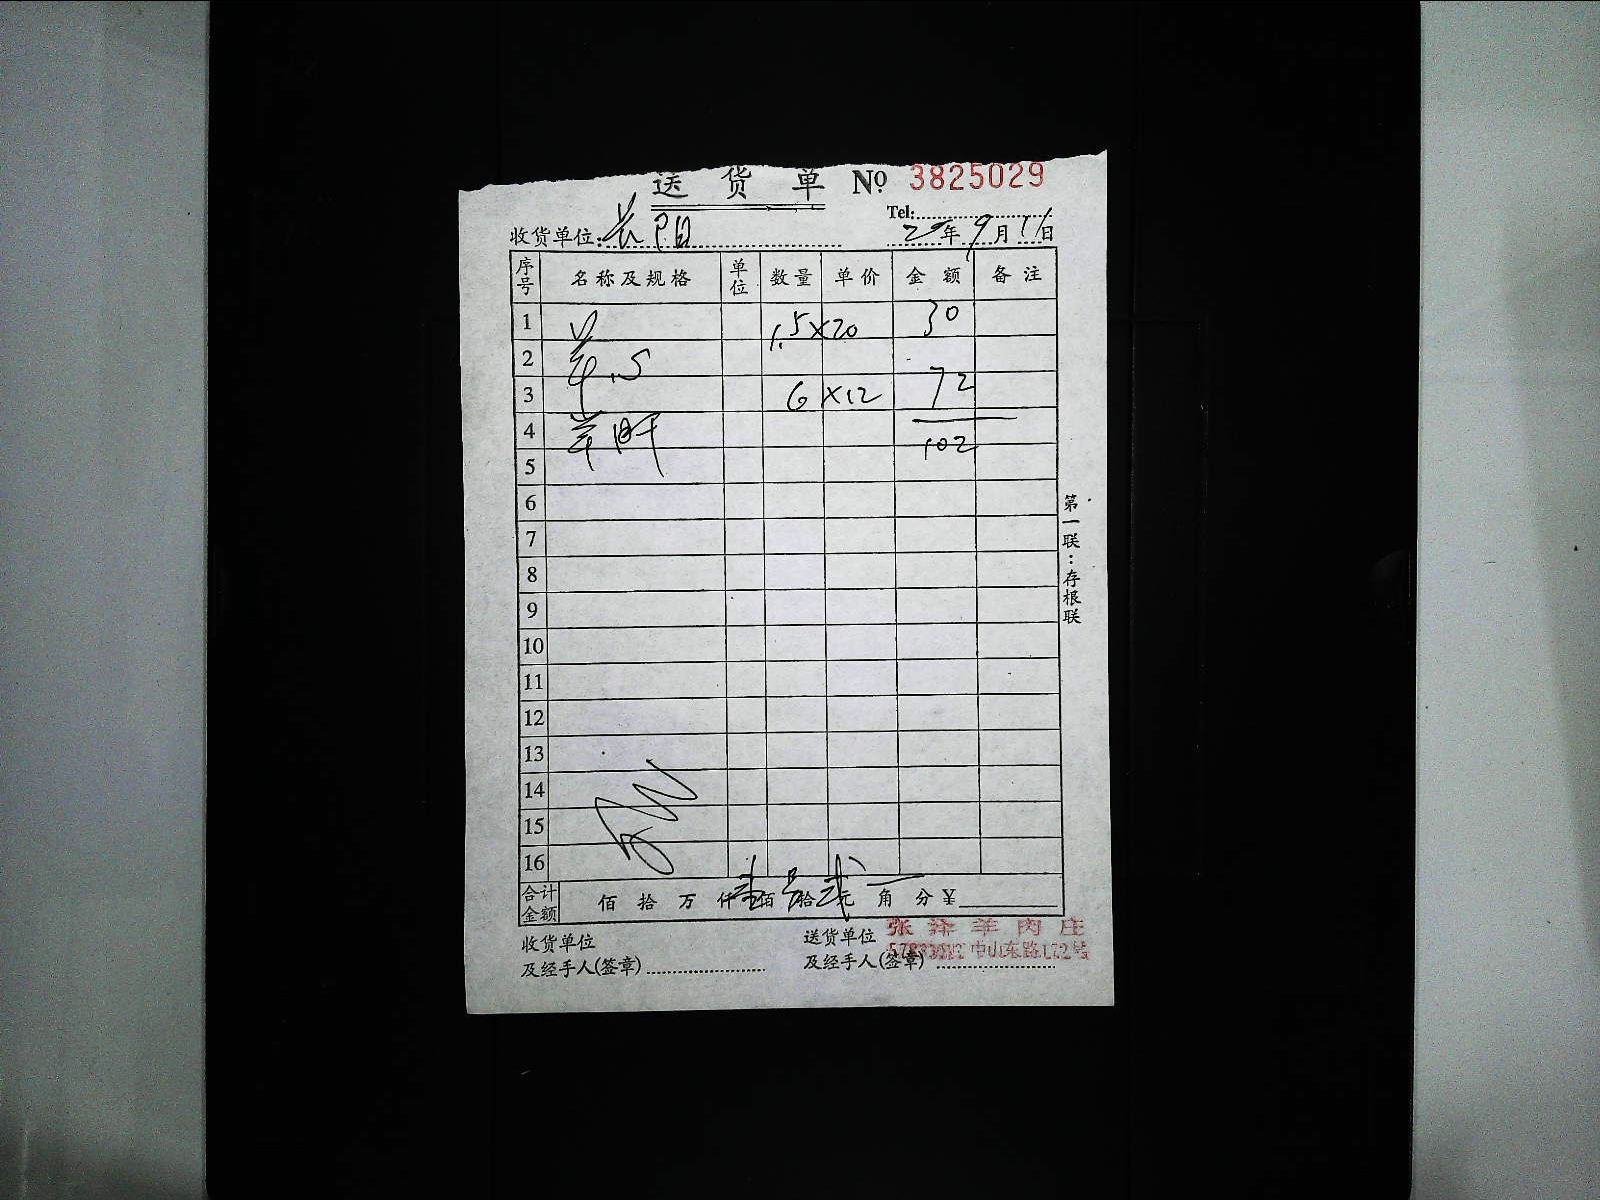 送 货 单 Nº 3825029
Tel:
收货单位: 长阳 20年9月11日
序号 名称及规格 单位 数量 单价 金额 备注
1 1.5×20 30
2 羊
3 6 ×12 72
4 羊肝 102
5
6
7
8
9
10
11
12
13
14
15
16
合计金额 佰 拾 万 仟 壹佰 零拾 贰元 角 分 ¥
收货单位 送货单位 张泽羊肉庄
及经手人(签章) 及经手人(签章) 中山东路172号
第一联:存根联